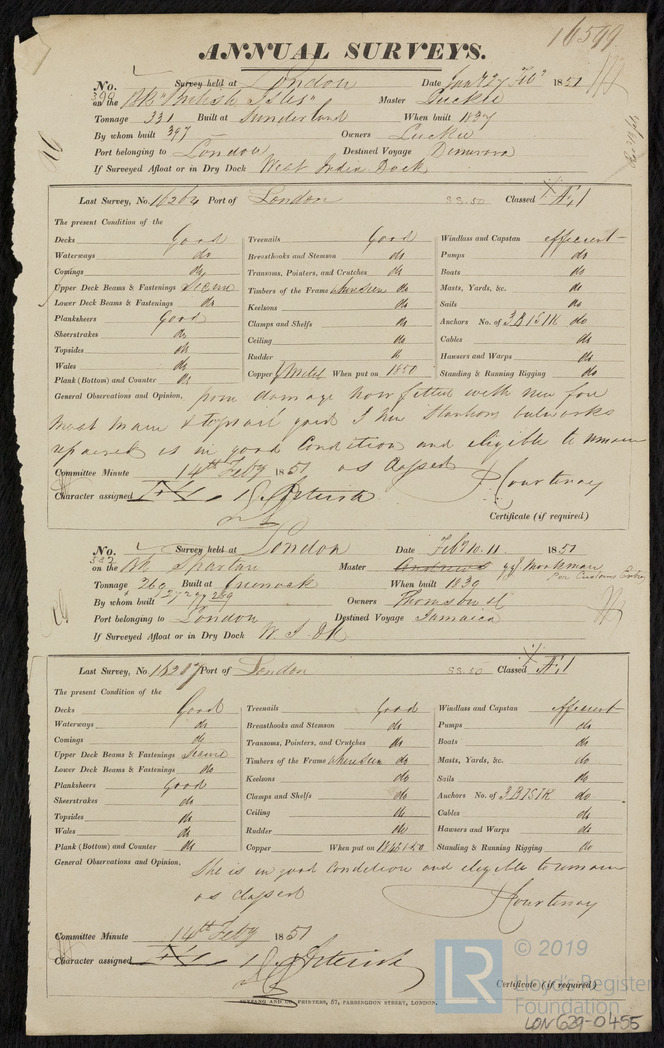 16599
ANNUAL SURVEYS.
No. 399 Survey held at London Date Jany 27 Feby 1851
on the Bk "British Isles" Master Luckie
Tonnage 331 Built at Sunderland When built 1837
By whom built 397 Owners Luckie
Port belonging to London Destined Voyage Demerara
If Surveyed Afloat or in Dry Dock West India Dock
Last Survey, No. 16262 Port of London SS.50 Classed A,1
The present Condition of the
Decks Good Treenails Good Windlass and Capstan efficient
Waterways do Breasthooks and Stemson do Pumps do
Comings do Transoms, Pointers, and Crutches do Boats do
Upper Deck Beams & Fastenings Secure Timbers of the Frame where seen do Masts, Yards, &c. do
Lower Deck Beams & Fastenings do Keelsons do Sails do
Planksheers Good Clamps and Shelfs do Anchors No. of 3B 1S 1K do
Sheerstrakes do Ceiling do Cables do
Topsides do Rudder do Hawsers and Warps do
Wales do Copper Y Metal When put on 1850 Standing & Running Rigging do
Plank (Bottom) and Counter do
General Observations and Opinion, from damage now fitted with new fore
mast main & topsail yard & new Stanchions bulwarks
repaired is in good Condition and eligible to remain
as Classed
Committee Minute 14th Feby 1851 Courtenay
Character assigned
Certificate (if required)
No. 532 Survey held at London Date Feby 10.11 1851
on the Bk Spartan Master Andrews J. Workman
Per Customs Entry
Tonnage 260 Built at Greenock When built 1839
By whom built Owners Thomson &c
Port belonging to London Destined Voyage Jamaica
If Surveyed Afloat or in Dry Dock W. I. Dk
Last Survey, No. Port of London SS.50 Classed A,1
The present Condition of the
Decks Good Treenails Good Windlass and Capstan efficient
Waterways do Breasthooks and Stemson do Pumps do
Comings do Transoms, Pointers, and Crutches do Boats do
Upper Deck Beams & Fastenings Secure Timbers of the Frame where seen do Masts, Yards, &c. do
Lower Deck Beams & Fastenings do Keelsons do Sails do
Planksheers Good Clamps and Shelfs do Anchors No. of 3B 1S 1K do
Sheerstrakes do Ceiling do Cables do
Topsides do Rudder do Hawsers and Warps do
Wales do Copper When put on Standing & Running Rigging do
Plank (Bottom) and Counter do
General Observations and Opinion, She is in good Condition and eligible to remain
as Classed
Courtenay
Committee Minute 14th Feby 1851
Character assigned
Certificate (if required)
SEYFANG AND CO. PRINTERS, 57, FARRINGDON STREET, LONDON.
LR © 2019
Lloyd's Register
Foundation
LON629-0455